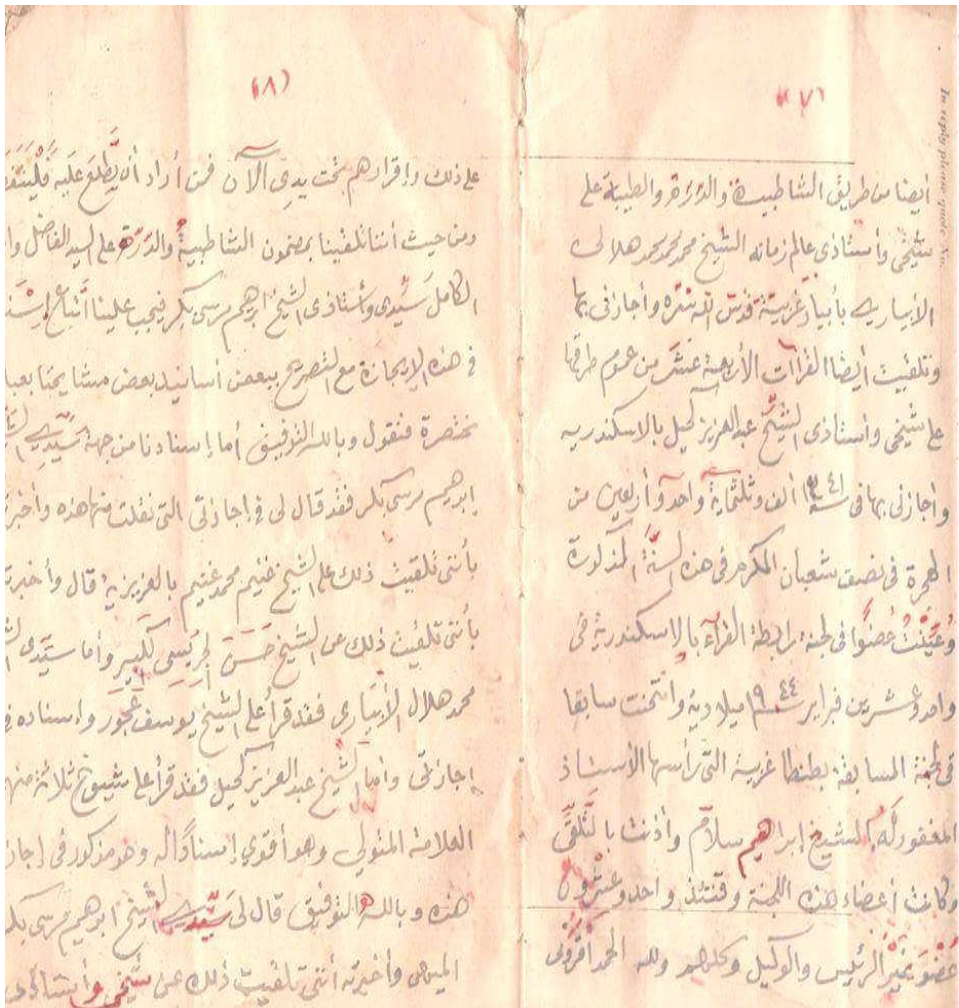 (٧)
أيضا من طريق الشاطبية والدرة والطيبة على
شيخى وأستاذى عالم زمانه الشيخ محمد محمد هلالى
الأبيارى بأبيار غربية قدس الله سره وأجازنى بها
وتلقيت أيضا القراآت الأربعة عشر من عموم طرقها
على شيخى وأستاذى الشيخ عبد العزيز كحيل بالاسكندريه
وأجازنى بها فى سنة ١٣٤١ ألف وثلثماية وأحد وأربعين من
الهجرة فى نصف شعبان المكرم فى هذه السنة المذكورة
وعينت عضوا فى لجنة رابطة القرآء بالاسكندرية فى
واحد وعشرين فبراير سنة ١٩٤٤ ميلادية وامتحنت سابقا
فى لجنة المسابقة بطنطا غربية التى رأسها الأستاذ
المغفور له الشيخ إبراهيم سلام وأذنت بالتلقى
وكانت أعضاء هذه اللجنة وقتئذ واحد وعشرون
عضو بغير الرئيس والوكيل وكلهم ولله الحمد أقرونى
In reply please quote No.
(٨)
على ذلك وإقرارهم تحت يدى الآن فمن أراد أن يطلع عليه
ومن حيث أننا تلقينا بمضمون الشاطبية والدرة على السيد الفاضل
الكامل سيدى وأستاذى الشيخ ابرهيم مرسى بكر فيجب علينا اتباع
فى هذه الإجازة مع التصريح ببعض أسانيد بعض مشايخنا
مختصرة فنقول وبالله التوفيق أما إسنادنا من جهة سيدى
ابرهيم مرسى بكر فقد قال لى فى إجازتى التى نقلت منها هذه
بأننى تلقيت ذلك على الشيخ غنيم محمد غنيم بالعزيزية قال
بأننى تلقيت ذلك عن الشيخ حسن الجريسى الكبير وأما سيدى
محمد هلال الأبيارى فقد قرأ على الشيخ يوسف عجور وإسناده
إجازتى وأما الشيخ عبد العزيز كحيل فقد قرأ على شيوخ ثلاثة منهم
العلامة المتولى وهو أقوى إسنادا له وهو مذكور فى
هذه وبالله التوفيق قال لى سيدى الشيخ ابرهيم مرسى بكر
وأخبرته أننى تلقيت ذلك عن شيخى وأستاذى